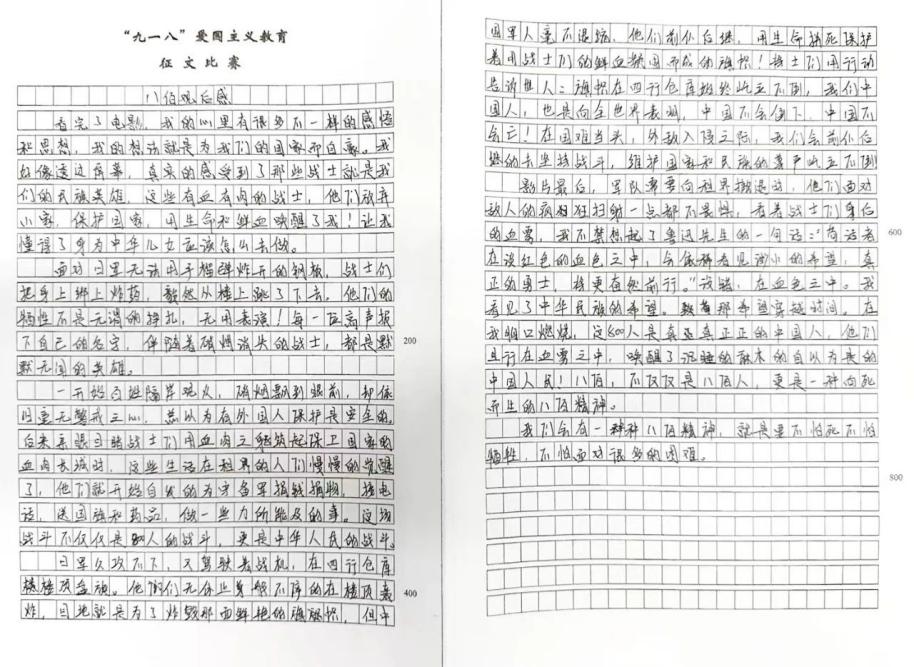 “九一八”爱国主义教育
征文比赛
八佰观后感
看完了电影，我的心里有很多不一样的感悟
和思想，我的想法就是为我们的国家而自豪。我
好像透过屏幕，真实的感受到了那些战士就是我
们的民族英雄，这些有血有肉的战士，他们放弃
小家，保护国家，用生命和鲜血唤醒了我！让我
懂得了身为中华儿女应该怎么去做。
面对日军无法用手榴弹炸开的钢板，战士们
把身上绑上炸药，毅然从楼上跳了下去。他们的
牺牲不是无谓的挣扎，无用表演！每一位高声报
下自己的名字，伴随着硝烟消失的战士，都是默
默无闻的英雄。
一开始百姓隔岸观火，硝烟飘到眼前，却依
旧毫无警戒之心，总以为有外国人保护是安全的，
后来亲眼目睹战士们用血肉之躯筑起保卫国家的
血肉长城时，这些生活在租界的人们慢慢的觉醒
了，他们就开始自发的为守备军捐钱捐物，接电
话，送国旗和药品，做一些力所能及的事。这场
战斗不仅仅是800人的战斗，更是中华人民的战斗。
日军久攻不下，又驾驶着战机，在四行仓库
楼顶盘旋。他们无休止般不停的在楼顶轰
炸，目地就是为了炸毁那面鲜艳的旗帜，但中
200
400
国军人毫不退缩，他们前仆后继，用生命拼死保护
着用战士们的鲜血换回而成的旗帜！战士们用行动
告诉世人：旗帜在四行仓库始终屹立不倒，我们中
国人，也是向全世界表明，中国不会倒下，中国不
会亡！在国难当头，外敌入侵之际，我们会前仆后
继的去坚持战斗，维护国家和民族的尊严屹立不倒
影片最后，军队需要向租界撤退时，他们面对
敌人的疯狂扫射一点都不畏惧，看着战士们身后
的血雾，我不禁想起了鲁迅先生的一句话：“苟活者
在淡红色的血色之中，会依稀看见微小的希望，真
正的勇士，将更奋然前行。”没错，在血色之中。我
看见了中华民族的希望。那希望穿越时间。在
我胸口燃烧，这800人是真真正正的中国人，他们
且行在血雾之中，唤醒了沉睡的麻木的自以为是的
中国人民！八佰，不仅仅是八佰人，更是一种向死
而生的八佰精神。
我们会有一种种八佰精神，就是要不怕死不怕
牺牲，不怕面对很多的困难。
600
800